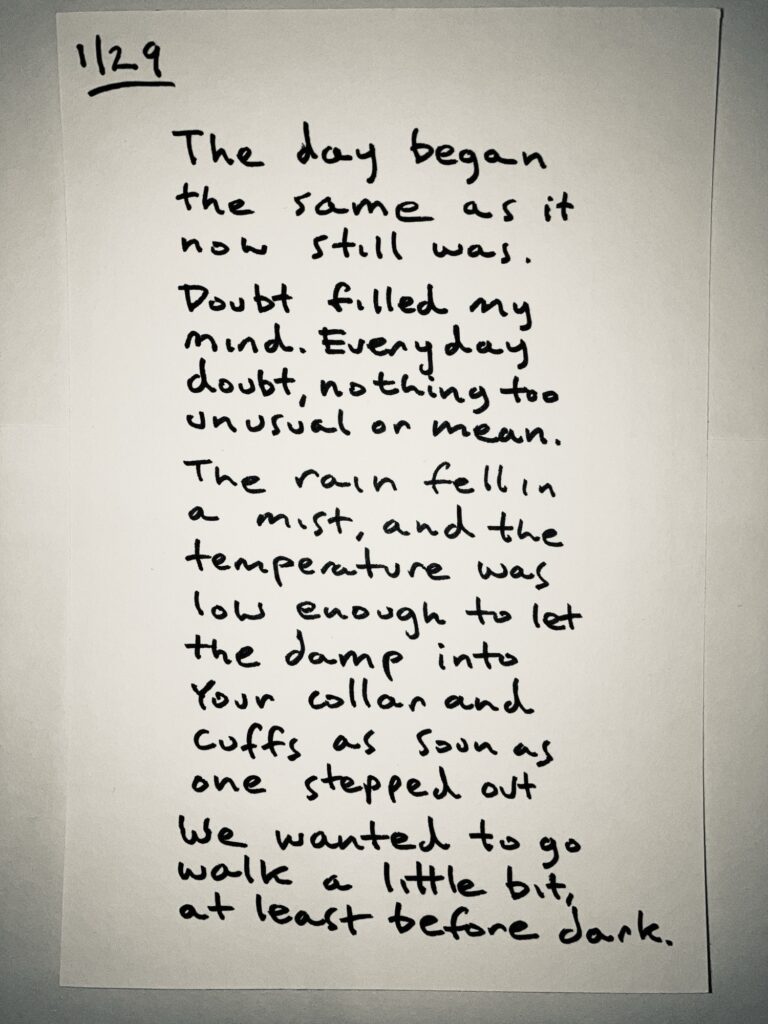 1/29
The day began
the same as it
now still was.
Doubt filled my
mind. Everyday
doubt, nothing too
unusual or mean.
The rain fell in
a mist, and the
temperature was
low enough to let
the damp into
Your collar and
cuffs as soon as
one stepped out
We wanted to go
walk a little bit,
at least before dark.